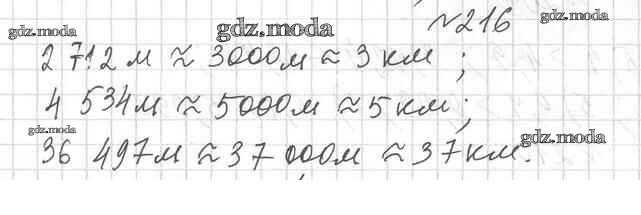 №216
gdz.moda gdz.moda gdz.moda
2 712 м ≈ 3000м ≈ 3 км ;
4 534м ≈ 5000м ≈ 5 км ;
gdz.moda gdz.moda
36 497м ≈ 37 000м ≈ 37км.